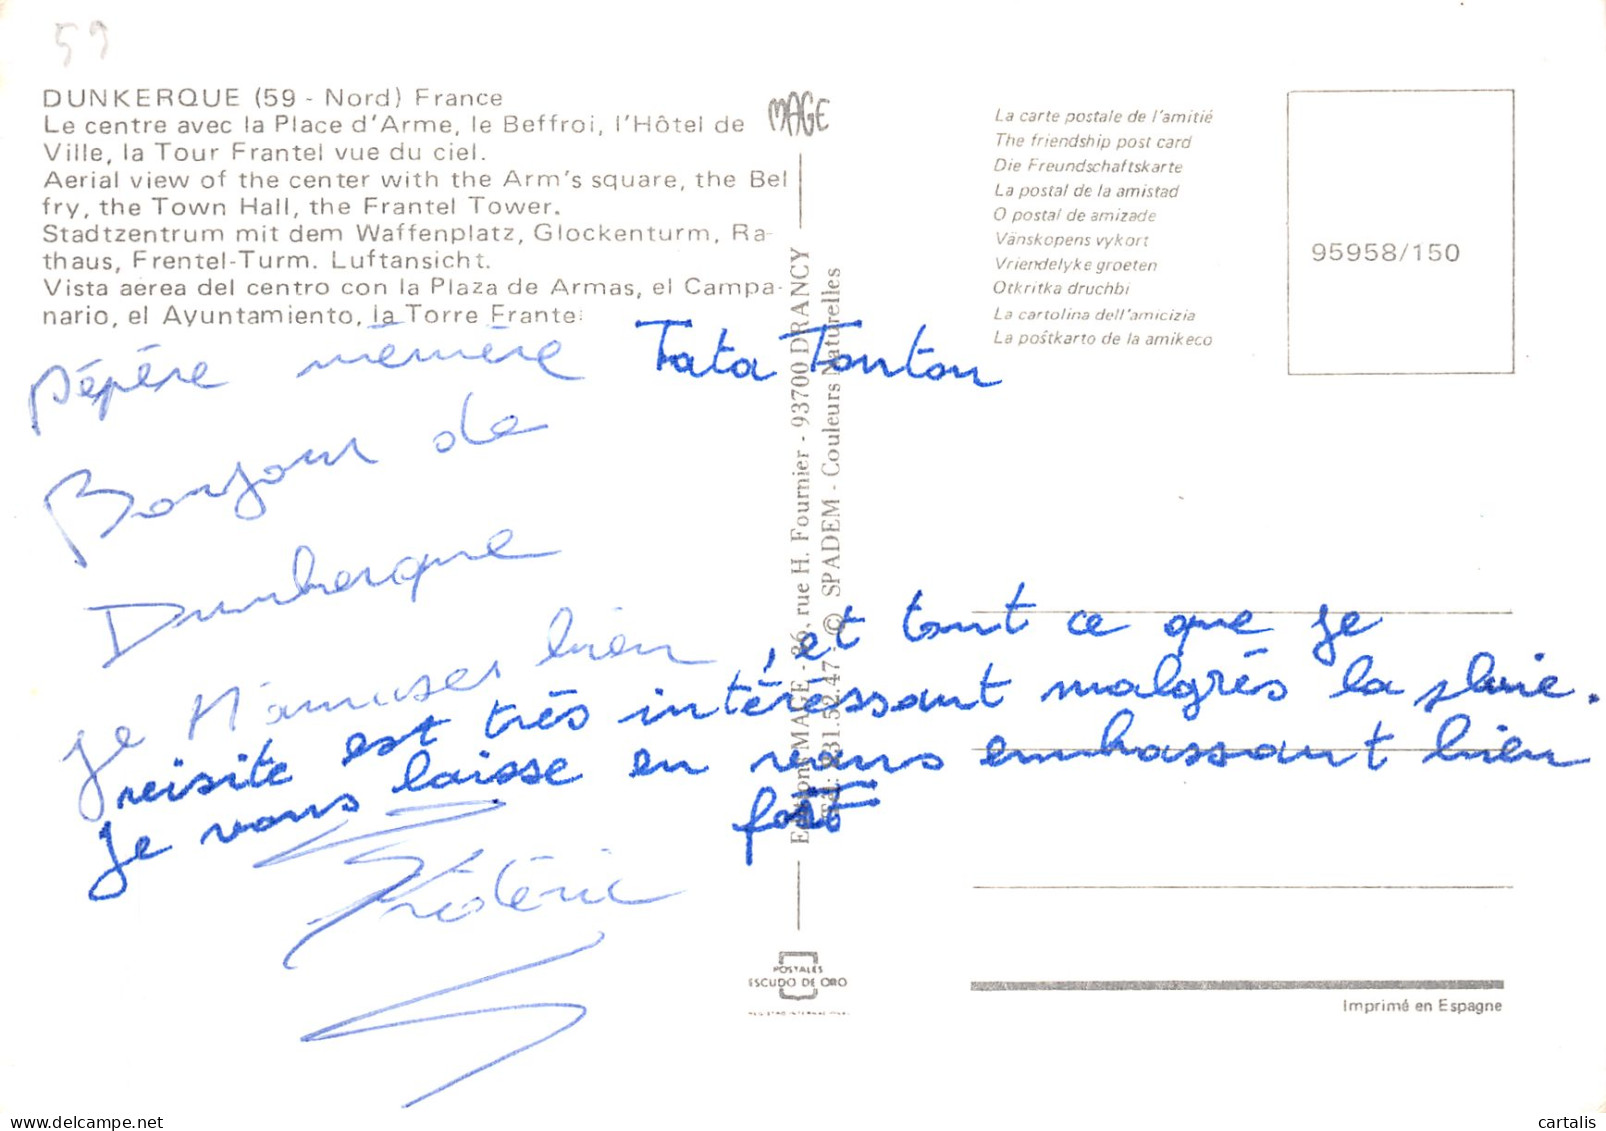 59
DUNKERQUE (59 - Nord) France
Le centre avec la Place d'Arme, le Beffroi, l'Hôtel de
Ville, la Tour Frantel vue du ciel.
Aerial view of the center with the Arm's square, the Bel
fry, the Town Hall, the Frantel Tower.
Stadtzentrum mit dem Waffenplatz, Glockenturm, Ra-
thaus, Frentel-Turm. Luftansicht.
Vista aèrea del centro con la Plaza de Armas, el Campa-
nario, el Ayuntamiento, la Torre Frante
MAGE
La carte postale de l'amitié
The friendship post card
Die Freundschaftskarte
La postal de la amistad
O postal de amizade
Vänskopens vykort
Vriendelyke groeten
Otkritka druchbi
La cartolina dell'amicizia
La poŝtkarto de la amikeco
95958/150
Pépère mémère Tata Tonton
Bonjour de
Dunkerque
je M'amuses bien, et tout ce que je
visite est très intéressant malgrès la pluie.
Je vous laisse en vous embrassant bien
fort
Frédéric
Editions MAGE - 36, rue H. Fournier - 93700 DRANCY
Tél: 831.52.47 - © SPADEM - Couleurs Naturelles
POSTALES
ESCUDO DE ORO
Imprimé en Espagne
cartalis